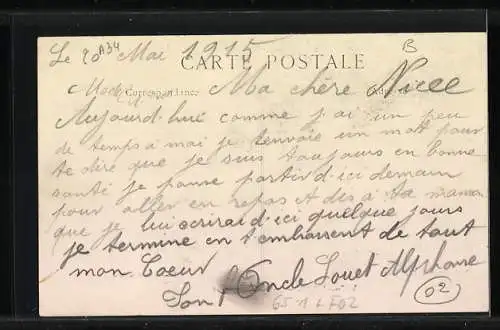 Le 20 Mai 1915
A34
B
CARTE POSTALE
Correspondance
Ma chère Niece
Aujourd'hué comme j'ai un peu
de temps a moi je t'envoie un mott pour
te dire que je suis toujours en bonne
santé je panse partir d'ici demain
pour aller en repos et dis à ta maman
que je lui ecrirai d'ici quelque jours
je termine en t'embrassent de tout
mon Coeur
Ton Oncle Louet Alphonse
02